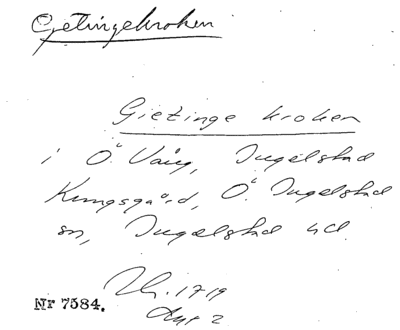 Getingekroken
Gietinge kroken
i Ö. Vång, Ingelstad
Kungsgård, Ö. Ingelstad
sn, Ingelstad hd.
1719
Akt 2
Nr 7584.